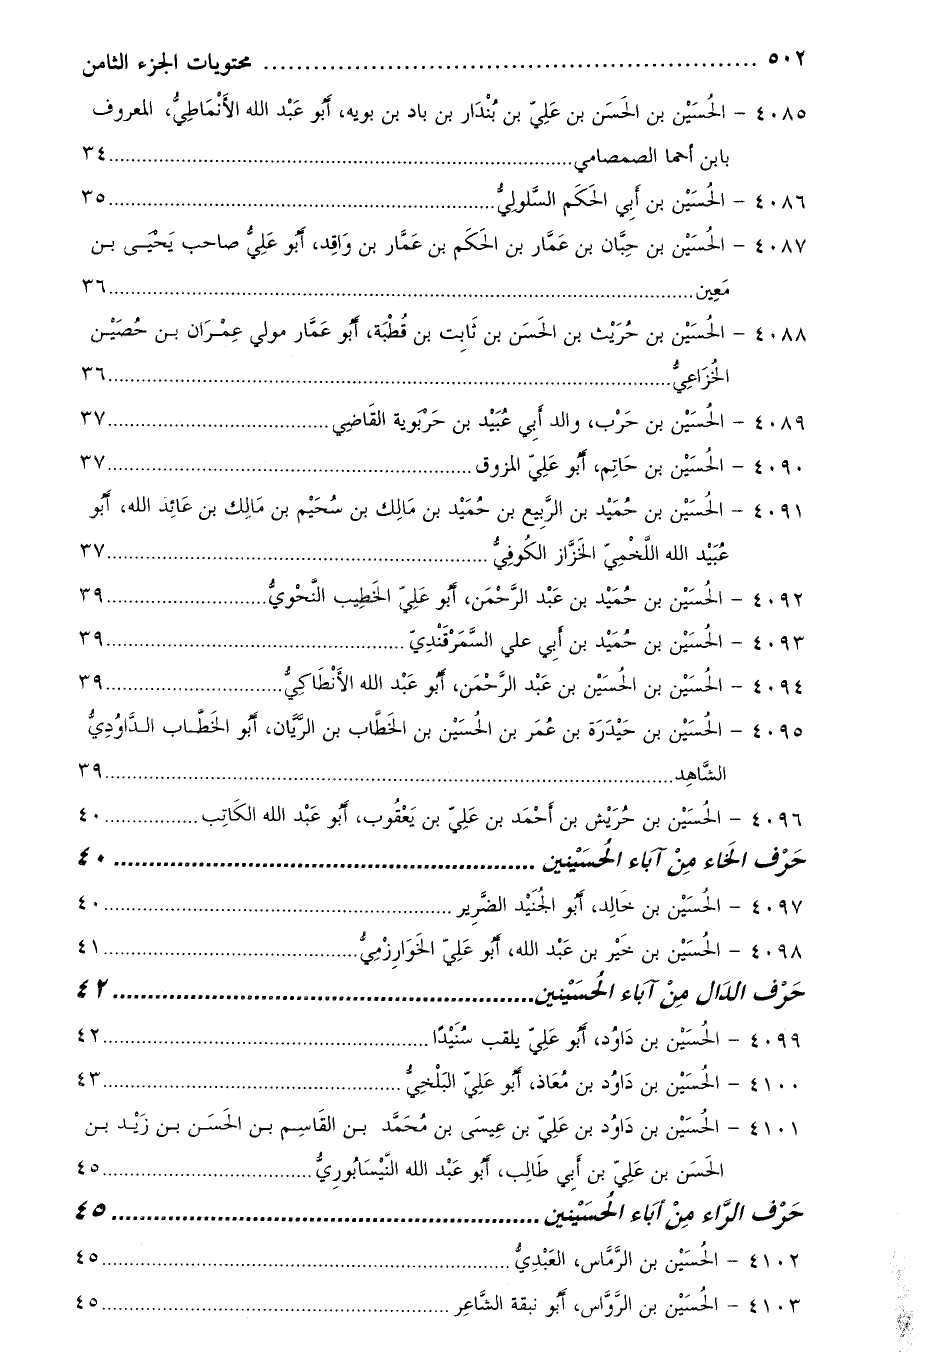 ٥٠٢ ........ محتويات الجزء الثامن
٤٠٨٥ - الحُسَيْن بن الحَسَن بن عَلِيّ بن بُنْدَار بن باد بن بويه، أَبُو عَبْد الله الأَنْمَاطِيُّ، المعروف
بابن أحما الصمصامي ........ ٣٤
٤٠٨٦ - الحُسَيْن بن أَبِي الحَكَم السَّلُولِيُّ ........ ٣٥
٤٠٨٧ - الحُسَيْن بن حِبَّان بن عَمَّار بن الحَكَم بن عَمَّار بن وَاقِد، أَبُو عَلِيُّ صاحب يَحْيَى بن
مَعِين ........ ٣٦
٤٠٨٨ - الحُسَيْن بن حُرَيْث بن الحَسَن بن ثَابِت بن قُطْبَة، أَبُو عَمَّار مولي عِمْرَان بن حُصَيْن
الخُزَاعِيُّ ........ ٣٦
٤٠٨٩ - الحُسَيْن بن حَرْب، والد أَبِي عُبَيْد بن حَرْبَوية القَاضِي ........ ٣٧
٤٠٩٠ - الحُسَيْن بن حَاتِم، أَبُو عَلِيّ المزوق ........ ٣٧
٤٠٩١ - الحُسَيْن بن حُمَيْد بن الرَّبِيع بن حُمَيْد بن مَالِك بن سُحَيْم بن مَالِك بن عَائِذ الله، أَبُو
عُبَيْد الله اللَّخْمِيّ الخَزَّاز الكُوفِيُّ ........ ٣٧
٤٠٩٢ - الحُسَيْن بن حُمَيْد بن عَبْد الرَّحْمَن، أَبُو عَلِيّ الخَطِيب النَّحْوِيُّ ........ ٣٩
٤٠٩٣ - الحُسَيْن بن حُمَيْد بن أَبِي علي السَّمَرْقَنْدِيّ ........ ٣٩
٤٠٩٤ - الحُسَيْن بن الحُسَيْن بن عَبْد الرَّحْمَن، أَبُو عَبْد الله الأَنْطَاكِيُّ ........ ٣٩
٤٠٩٥ - الحُسَيْن بن حَيْدَرَة بن عُمَر بن الحُسَيْن بن الخَطَّاب بن الرَّيَّان، أَبُو الخَطَّاب الدَّاوُدِيُّ
الشَّاهِد ........ ٣٩
٤٠٩٦ - الحُسَيْن بن حُرَيْش بن أَحْمَد بن عَلِيّ بن يَعْقُوب، أَبُو عَبْد الله الكَاتِب ........ ٤٠
حَرْف الخَاء مِنْ آبَاء الحُسَيْنِين ........ ٤٠
٤٠٩٧ - الحُسَيْن بن خَالِد، أَبُو الجُنَيْد الضَّرِير ........ ٤٠
٤٠٩٨ - الحُسَيْن بن خَيْر بن عَبْد الله، أَبُو عَلِيّ الخَوَارِزْمِيُّ ........ ٤١
حَرْف الدَال مِنْ آبَاء الحُسَيْنِين ........ ٤٢
٤٠٩٩ - الحُسَيْن بن دَاوُد، أَبُو عَلِيّ يلقب سُنَيْدًا ........ ٤٢
٤١٠٠ - الحُسَيْن بن دَاوُد بن مُعَاذ، أَبُو عَلِيّ البَلْخِيُّ ........ ٤٣
٤١٠١ - الحُسَيْن بن دَاوُد بن عَلِيّ بن عِيسَى بن مُحَمَّد بن القَاسِم بن الحَسَن بن زَيْد بن
الحَسَن بن عَلِيّ بن أَبِي طَالِب، أَبُو عَبْد الله النَّيْسَابُورِيُّ ........ ٤٥
حَرْف الرَّاء مِنْ أبَاء الحُسَيْنِين ........ ٤٥
٤١٠٢ - الحُسَيْن بن الرَّمَّاس، العَبْدِيُّ ........ ٤٥
٤١٠٣ - الحُسَيْن بن الرَّوَّاس، أَبُو نبقة الشَّاعِر ........ ٤٥